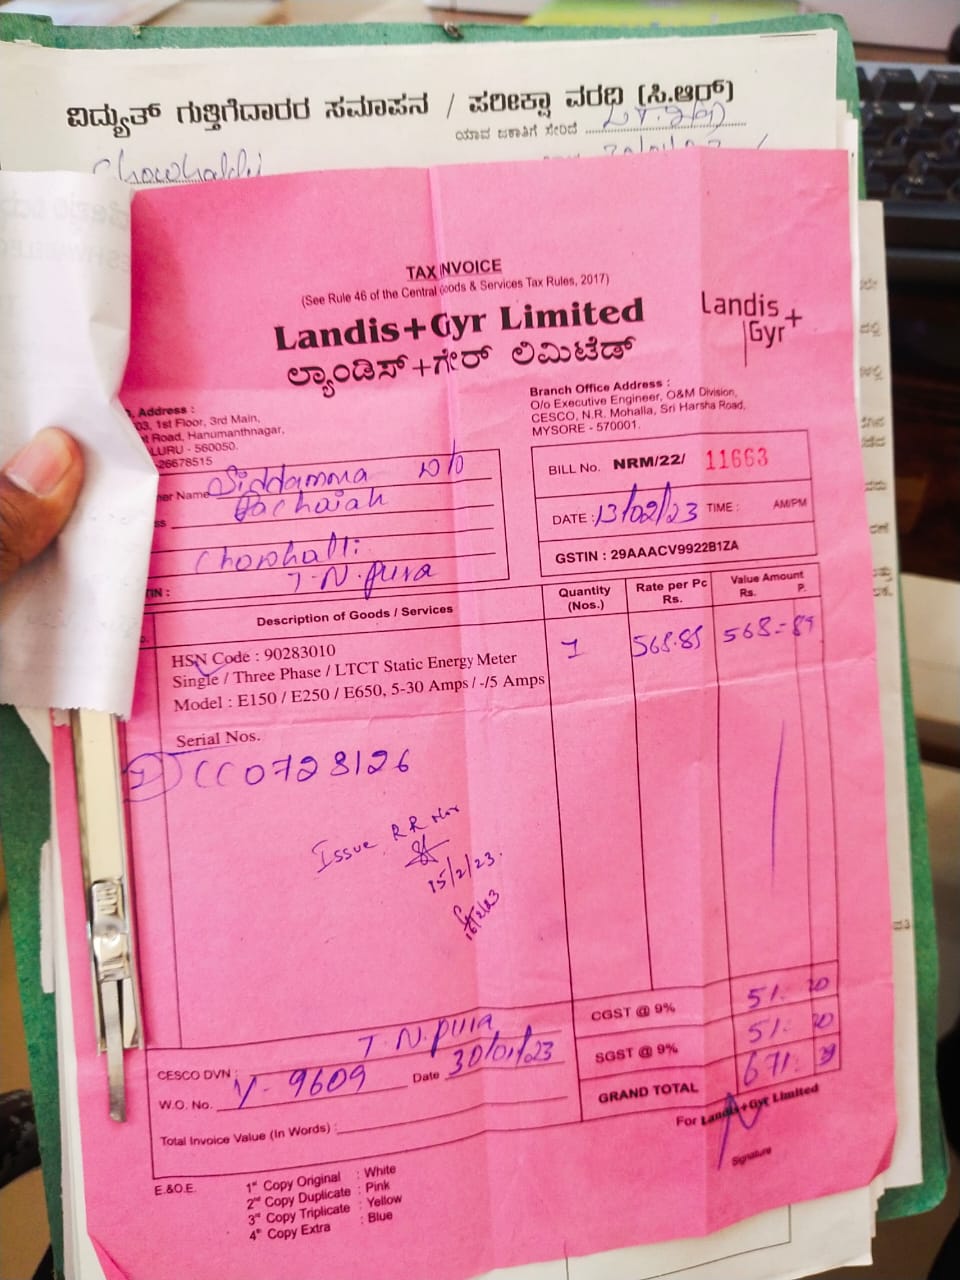 ವಿದ್ಯುತ್ ಗುತ್ತಿಗೆದಾರರ ಸಮಾಪನ / ಪರೀಕ್ಷಾ ವರದಿ (ಸಿ.ಆರ್)
ಯಾವ ಜಕಾತಿಗೆ ಸೇರಿದೆ
Chowhalli
TAX INVOICE
(See Rule 46 of the Central Goods & Services Tax Rules, 2017)
Landis+Gyr Limited
ಲ್ಯಾಂಡಿಸ್+ಗೇರ್ ಲಿಮಿಟೆಡ್
Landis+
Gyr
Address :
03, 1st Floor, 3rd Main,
t Road, Hanumanthnagar,
LURU - 560050.
26678515
Branch Office Address :
O/o Executive Engineer, O&M Division,
CESCO, N.R. Mohalla, Sri Harsha Road,
MYSORE - 570001.
er Name Siddamma w/o
ss
Chowhalli
T.N.pura
TIN :
BILL No. NRM/22/ 11663
DATE : 13/02/23 TIME : AM/PM
GSTIN : 29AAACV9922B1ZA
Description of Goods / Services
Quantity (Nos.)
Rate per Pc Rs.
Value Amount Rs. P.
HSN Code : 90283010
Single / Three Phase / LTCT Static Energy Meter
Model : E150 / E250 / E650, 5-30 Amps / -/5 Amps
1 568.85 568=85
Serial Nos.
1) CC0728126
Issue RR No
15/2/23
CGST @ 9% 51. 20
SGST @ 9% 51. 20
GRAND TOTAL 671.
CESCO DVN : T.N.pura
W.O. No. Y-9609 Date 30/01/23
Total Invoice Value (In Words) :
For Landis+Gyr Limited
Signature
E.&O.E.
1st Copy Original : White
2nd Copy Duplicate : Pink
3rd Copy Triplicate : Yellow
4th Copy Extra : Blue